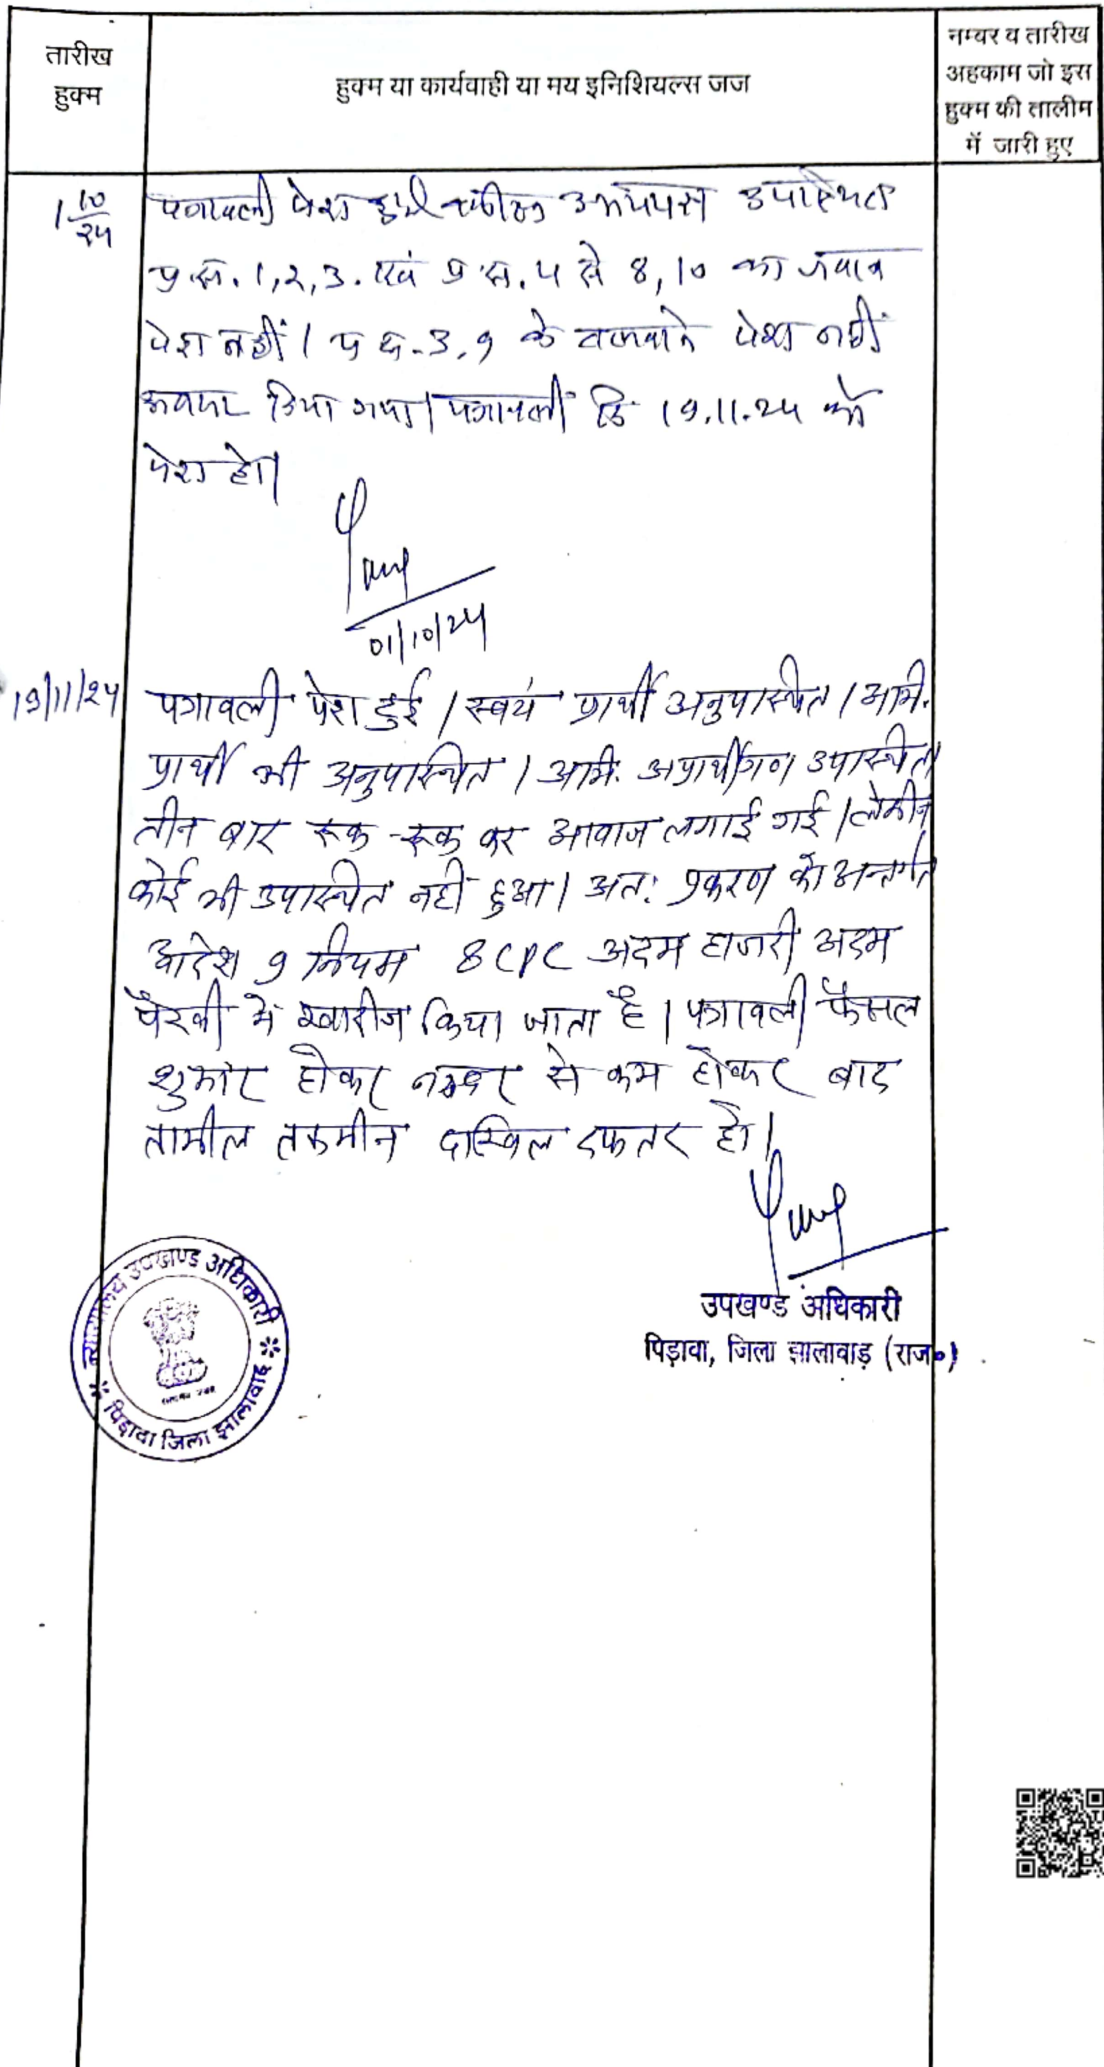 तारीख
हुक्म
हुक्म या कार्यवाही या मय इनिशियल्स जज
नम्बर व तारीख
अहकाम जो इस
हुक्म की तालीम
में जारी हुए
1/10/24
पत्रावली पेश हुई वकील उभयपक्ष उपस्थित
प्र.सं. 1,2,3. एवं प्र.सं. 4 से 8, 10 का जवाब
पेश नहीं। 3, 9 के तलवाने पेश नहीं
अवसर दिया गया। पत्रावली दि. 19.11.24 को
पेश हो।
01/10/24
19/11/24
पत्रावली पेश हुई। स्वयं प्रार्थी अनुपास्थित। अभि.
प्रार्थी भी अनुपास्थित। अभि. अप्रार्थीगण उपास्थित
तीन बार रूक-रूक कर आवाज लगाई गई। लेकीन
कोई भी उपास्थित नही हुआ। अतः प्रकरण को अन्तर्गत
आदेश 9 नियम 8 CPC अदम हाजरी अदम
पैरवी में खारीज किया जाता है। पत्रावली फैसल
शुमार होकर नम्बर से कम होकर बाद
तामील तकमीन दाखिल दफतर हो।
उपखण्ड अधिकारी
पिड़ावा, जिला झालावाड़ (राज०)
न्यायालय उपखण्ड अधिकारी
पिड़ावा जिला झालावाड़